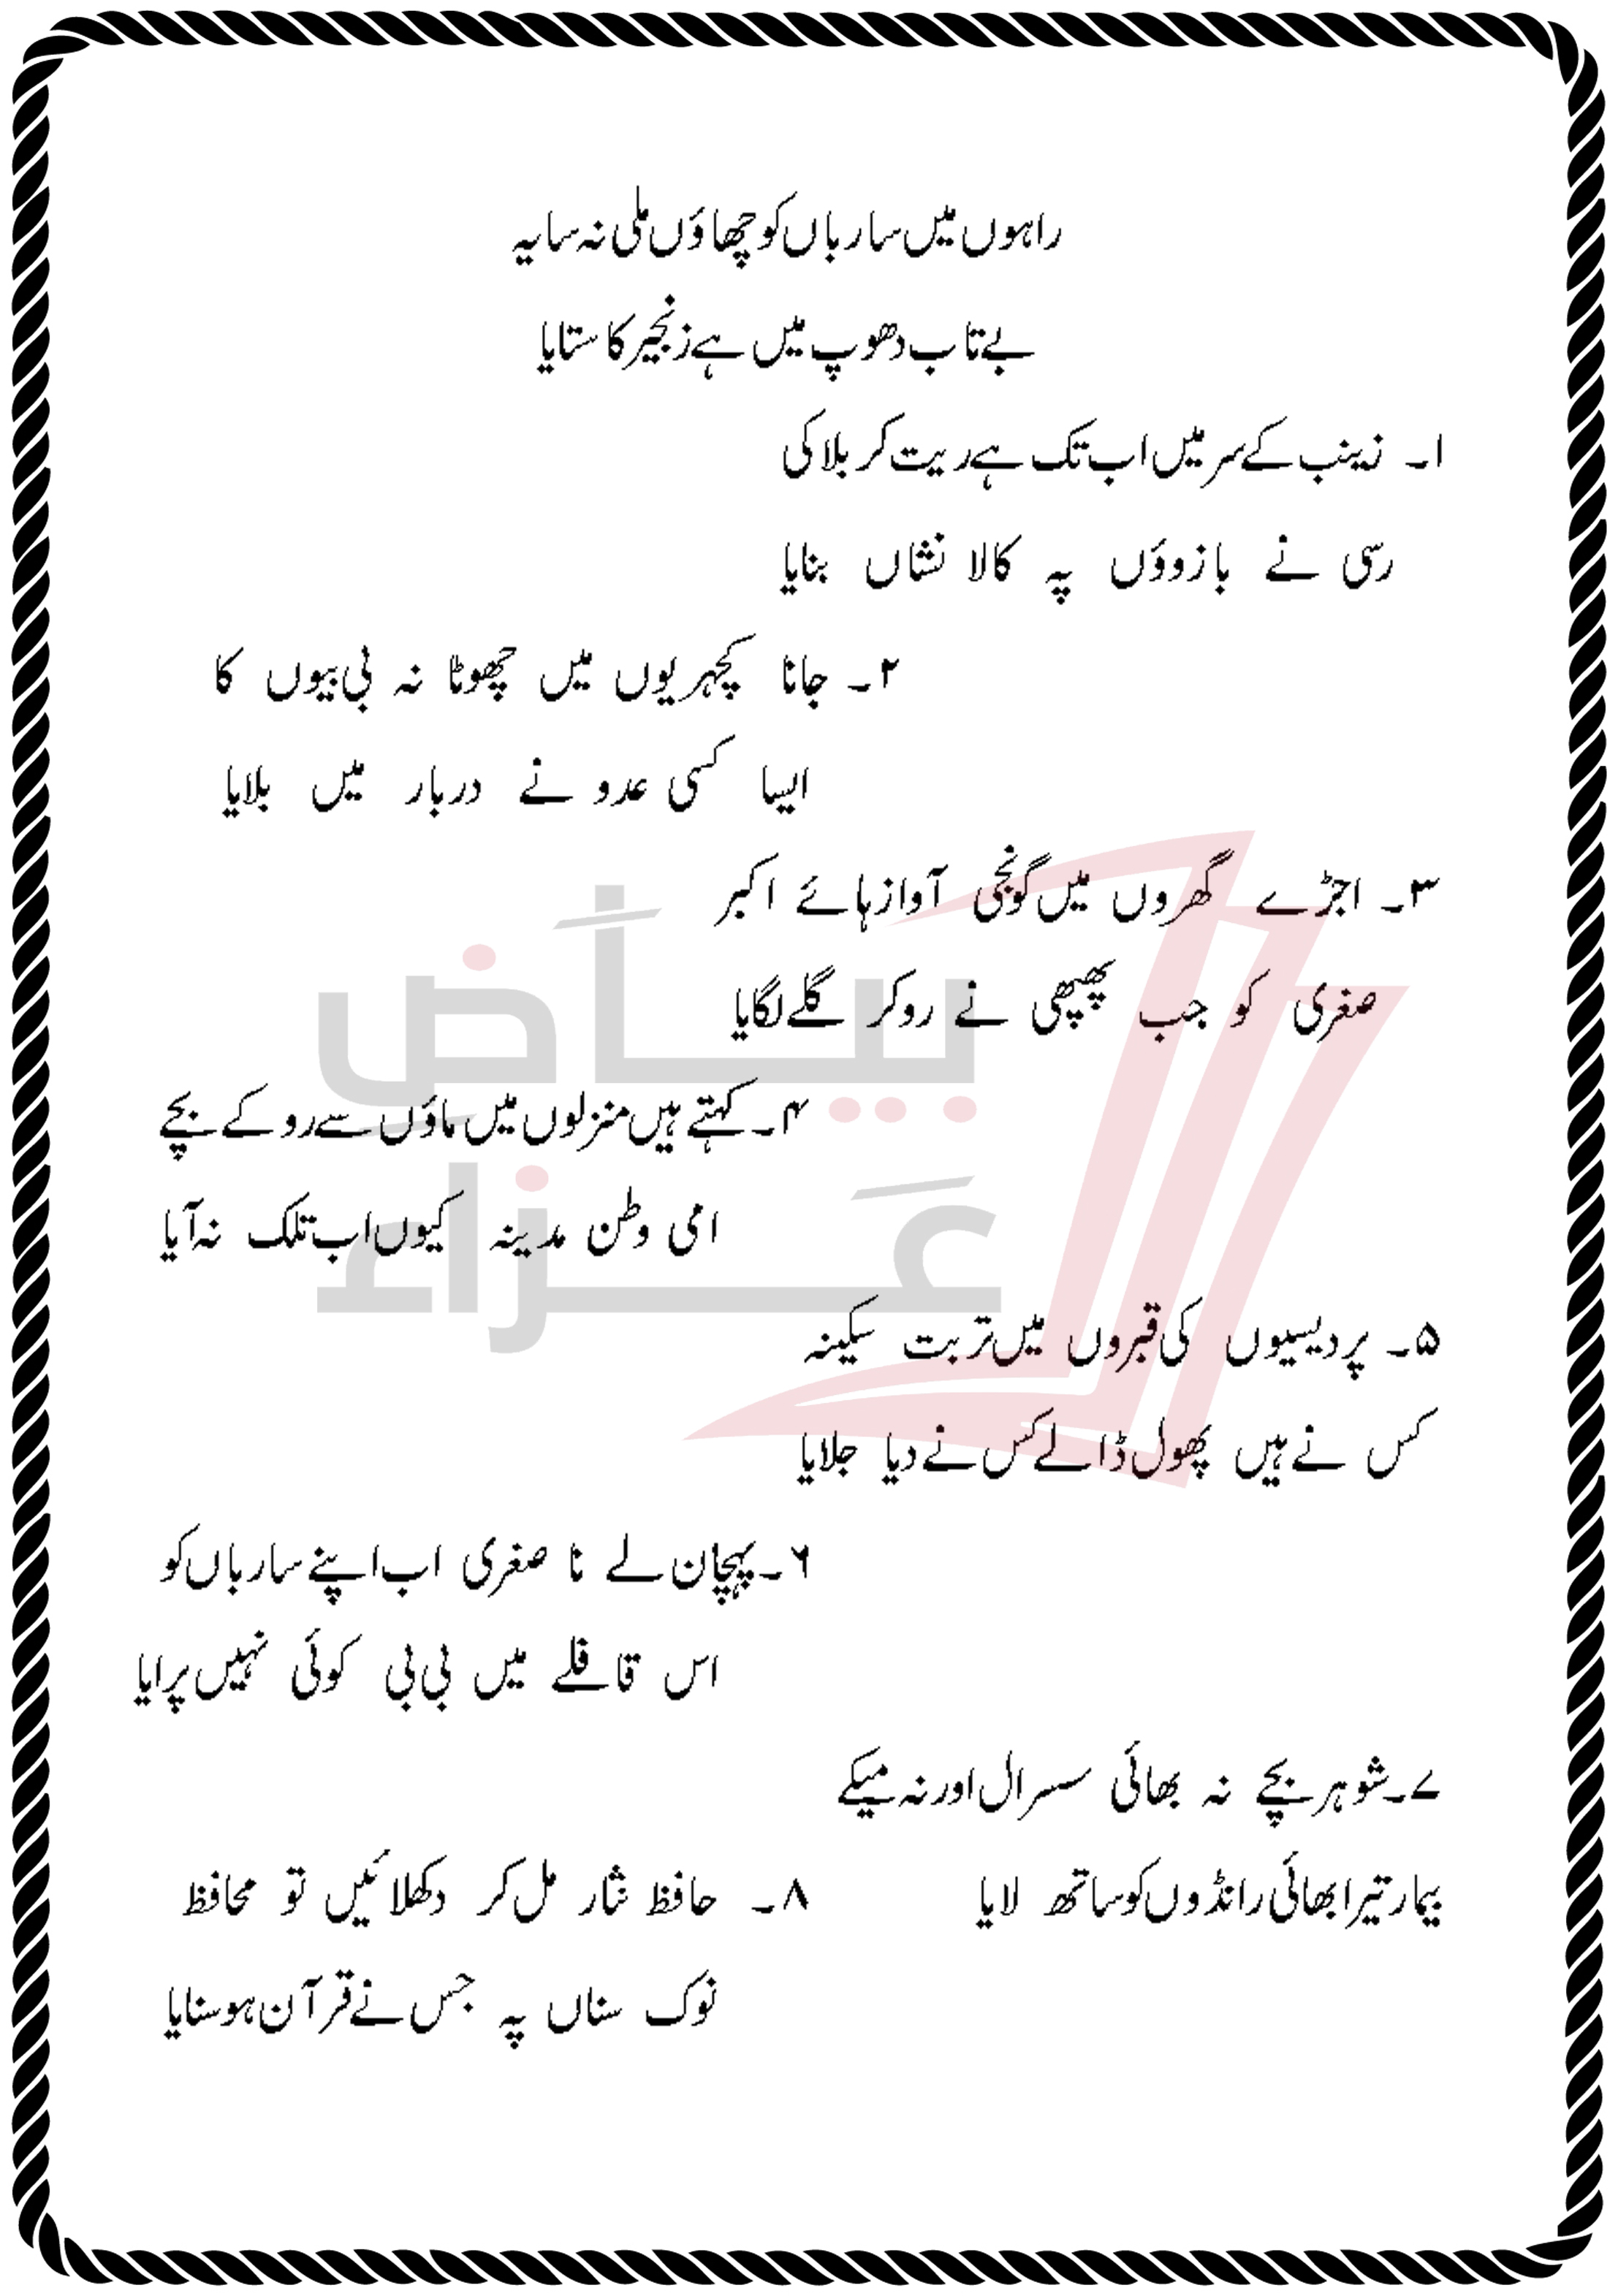 راہوں میں سارباں کو چھاؤں ملی نہ سایہ
بے تاب دھوپ میں ہے زنجیر کا ستایا
۱۔ زینب کے سر میں اب تک ہے ریت کربلا کی
رسی نے بازوؤں پہ کالا نشاں بنایا
۲۔ جانا کچہریوں میں چھوٹا نہ بی بیوں کا
ایسا کسی عدو نے دربار میں بلایا
۳۔ اجڑے گھروں میں گونجی آواز ہائے اکبر
صغری کو جب پھپھی نے رو کر گلے لگایا
۴۔ کہتے ہیں منزلوں میں ماؤں سے رو کے بچے
امی وطن مدینہ کیوں اب تلک نہ آیا
۵۔ پردیسیوں کی قبروں میں تربت سکینہ
کس نے ہیں پھول ڈالے کس نے دیا جلایا
۶۔ پہچان لے نا صغری اب اپنے سارباں کو
اس قافلے میں بی بی کوئی نہیں پرایا
۷۔ شوہر بچے نہ بھائی سسرال اور نہ میکے
بیمار تیرا بھائی رانڈوں کو ساتھ لایا
۸۔ حافظ نثار مل کر دکھلائیں تو محافظ
نوک سناں پہ جس نے قرآن ہو سنایا
بیاض
عزاء